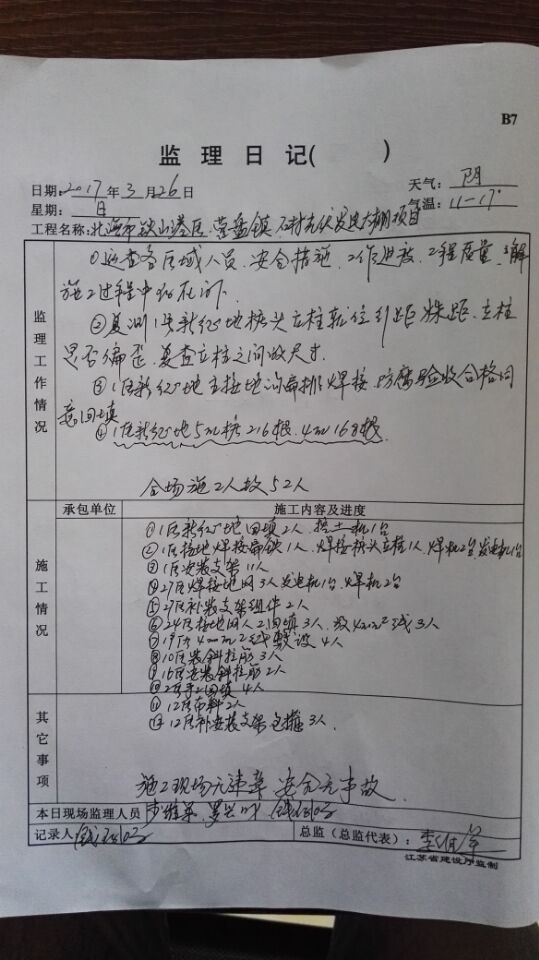 B7
监 理 日 记( )
日期:2017年3月26日 天气: 阴
星期: 日 气温: 11-17°
工程名称:北海市铁山港区 营盘镇 光伏发电大棚项目
监理工作情况
①巡查各区域人员、安全措施、工作进度、工程质量、了解
施工过程中
②复测1区新征地桩头立柱 距 株距、立柱
是否偏歪、复查立柱之间的尺寸.
③1区新征地主接地沟扁 焊接、防腐验收合格同
意回填
④1区新征地5m桩216根.4m168根.
全场施工人数52人
承包单位 施工内容及进度
施工情况
①1区新征地回填2人、挖土机1台
②1区接地焊接扁铁1人、焊接桩头立柱1人、焊机2台、发电机1台
③1区安装支架11人
④27区焊接地网3人发电机1台、焊机2台
⑤27区补装支架组件2人
⑥24区接地网人工回填3人、放4mm²线3人
⑦19区4mm²线敷设4人
⑧10区装斜拉筋3人
⑨16区安装斜拉筋2人
⑩2区手工回填4人
⑪12区布料2人
⑫12区补安装支架 3人.
其它事项
施工现场无违章 安全无事故.
本日现场监理人员
记录人
总监(总监代表):
江苏省建设厅监制